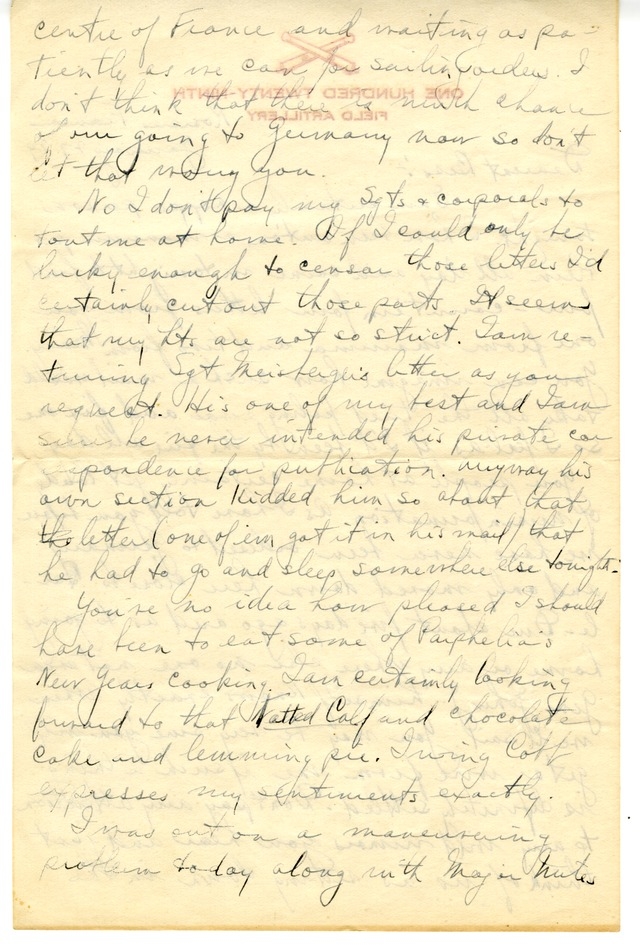 centre of France and waiting as pa-
tiently as we can for sailing orders. I
don't think that there is much chance
of our going to Germany now so don't
let that worry you.
No I don't pay my Sgts & corporals to
tout me at home. If I could only be
lucky enough to censor those letters I'd
certainly cut out those parts. It seems
that my Lts are not so strict. I am re-
turning Sgt Meisberger's letter as you
request. His one of my best and I am
sure he never intended his private cor
respondence for publication. Anyway his
own section kidded him so about that
the letter (one of em got it in his mail) that
he had to go and sleep somewhere else tonight.
You've no idea how pleased I should
have been to eat some of
New Years cooking. I am certainly looking
forward to that Fatted Calf and chocolate
cake and lemming pie. Irving Cobb
expresses my sentiments exactly.
I was out on a maneuvering
problem today along with Major
ONE HUNDRED TWENTY-NINTH
FIELD ARTILLERY